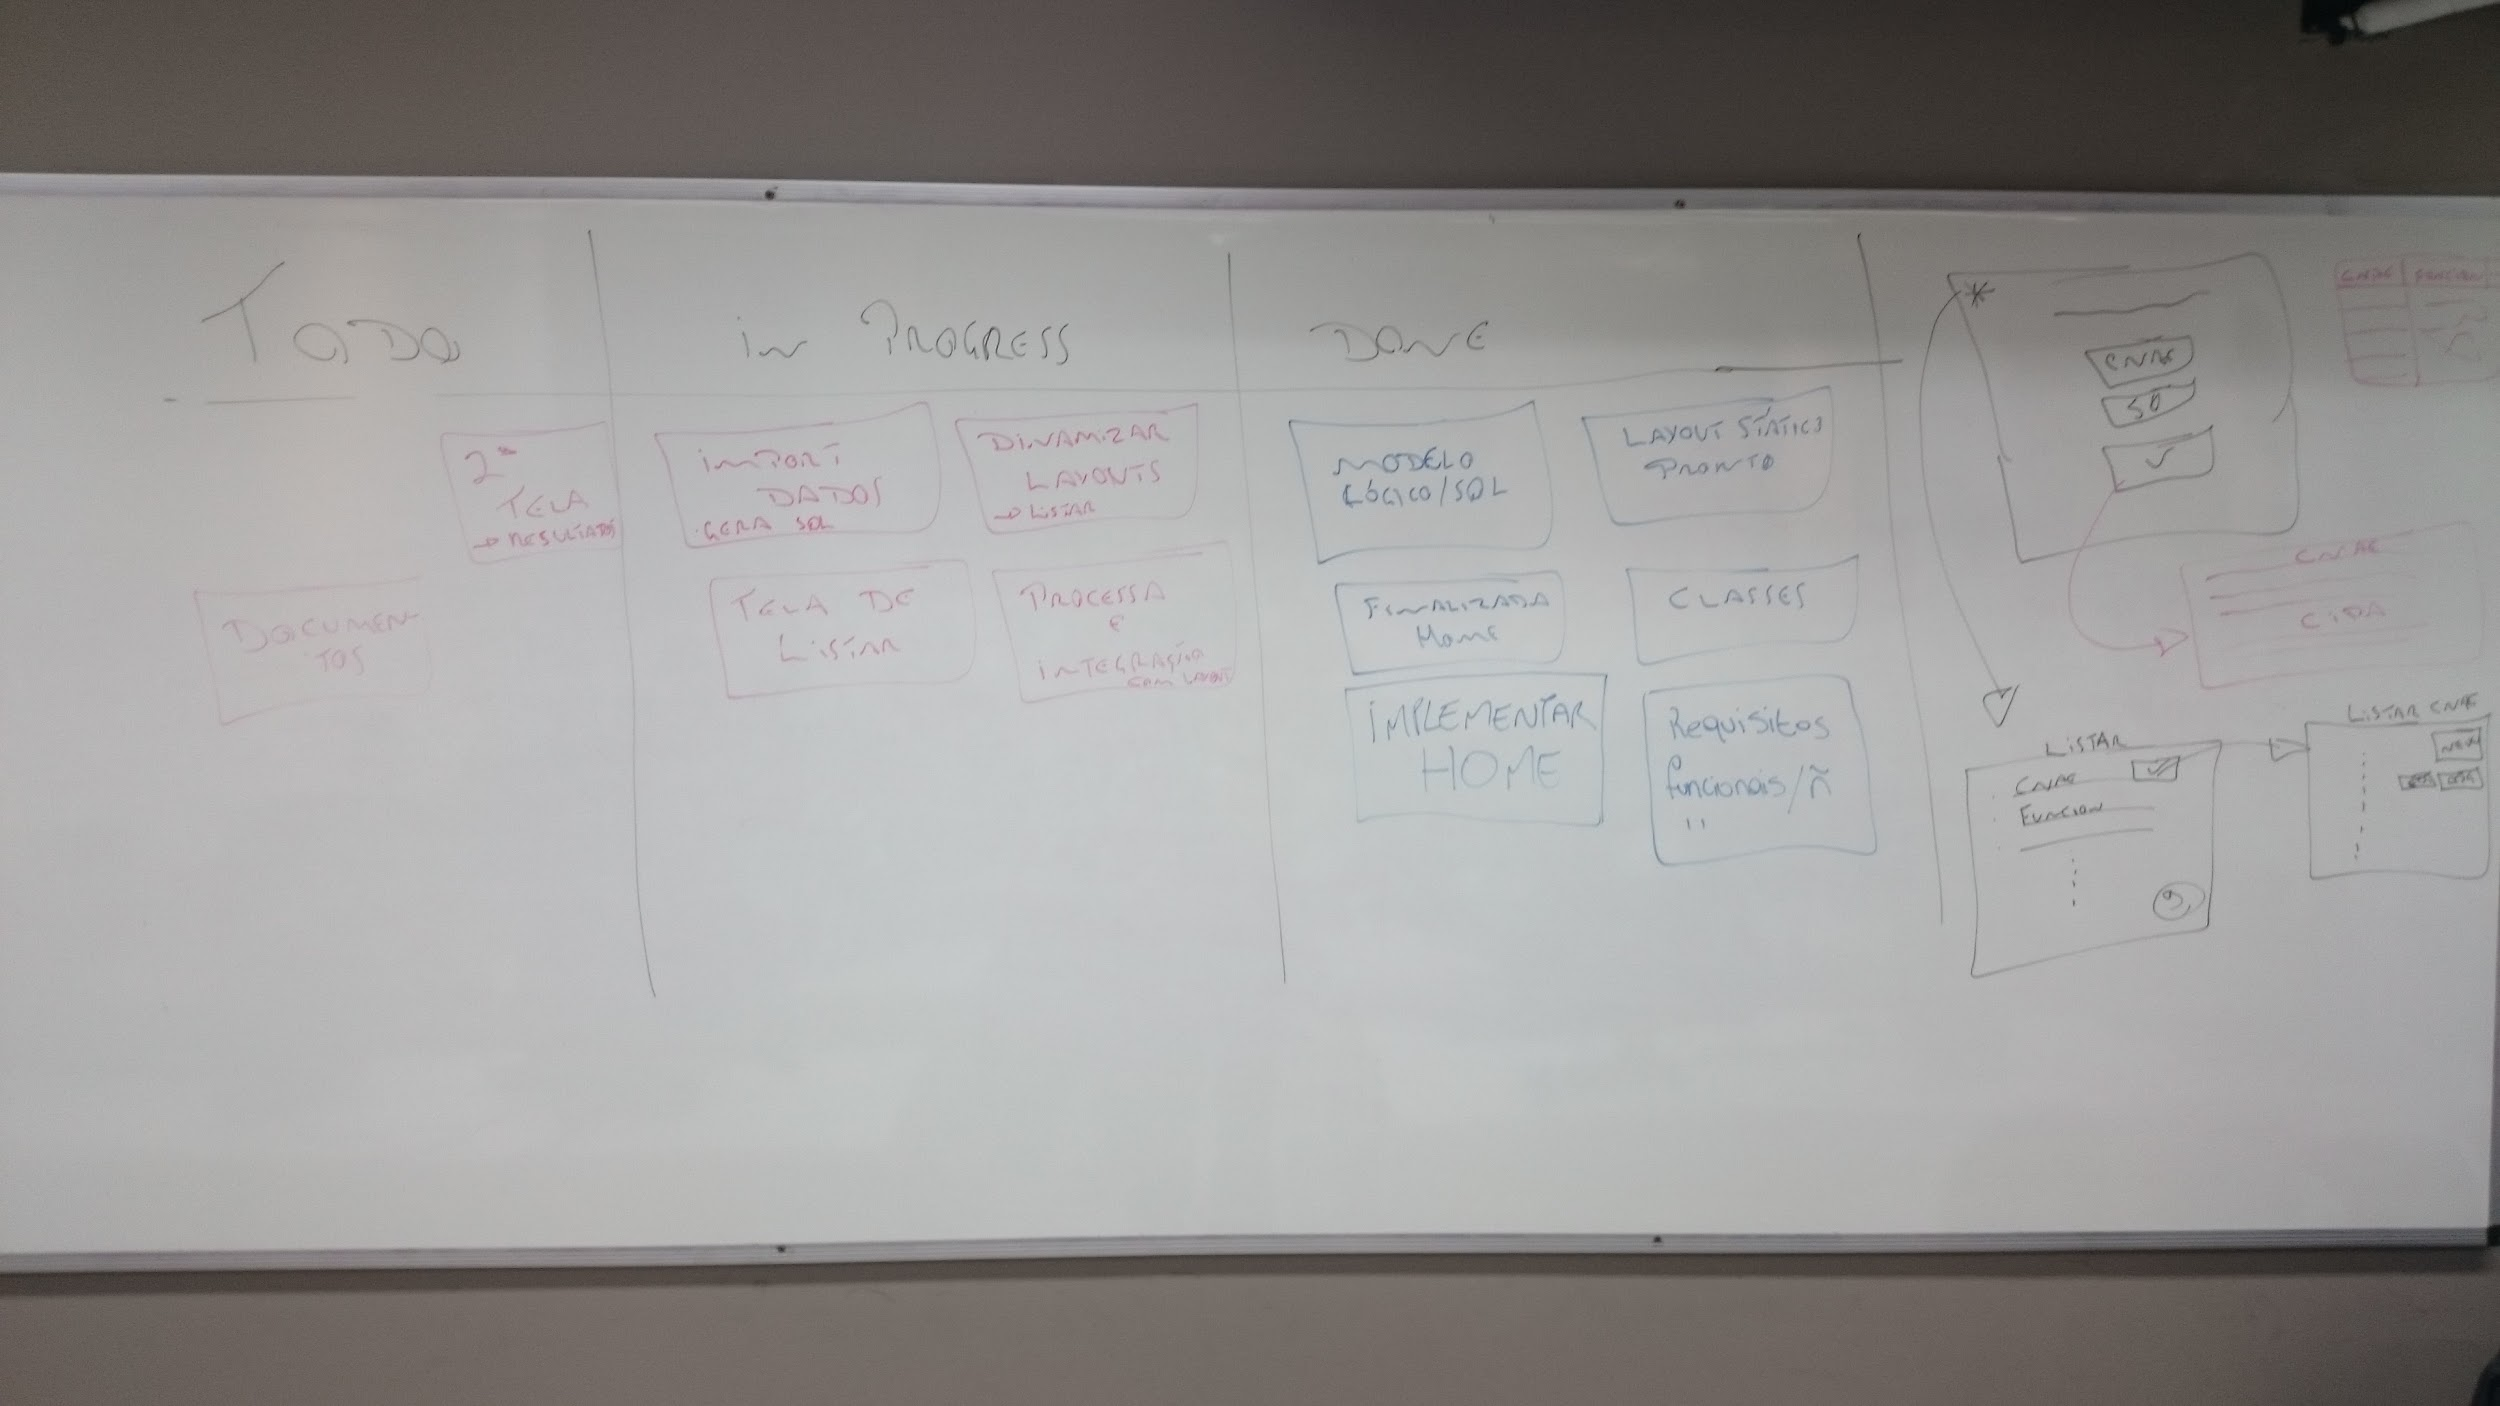 TODO
in PROGRESS
DONE
2ª
TELA
→ RESULTADOS
DOCUMEN
TOS
IMPORT
DADOS
GERA SQL
DINAMIZAR
LAYOUTS
→ LISTAR
TELA DE
LISTAR
PROCESSA
E
INTEGRAÇÃO
COM LAYOUT
MODELO
LÓGICO/SQL
LAYOUT STATICS
PRONTO
FINALIZADA
HOME
CLASSES
IMPLEMENTAR
HOME
Requisitos
funcionais/ñ
"
*
CNAE
50
CNAE
FUNCION
CNAE
CIDA
LISTAR
CNAE
FUNCION
LISTAR CNAE
NEW